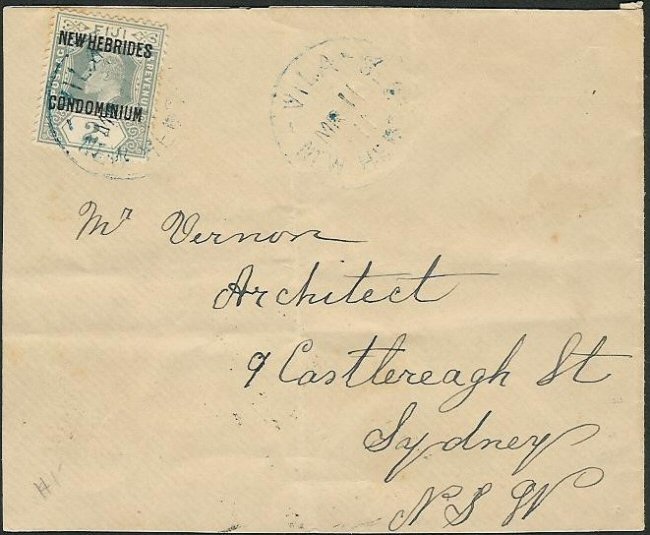 FIJI
NEW HEBRIDES
POSTAGE
REVENUE
CONDOMINIUM
2
VILA
11
Mr Vernon
Architect
9 Castlereagh St
Sydney
N S W